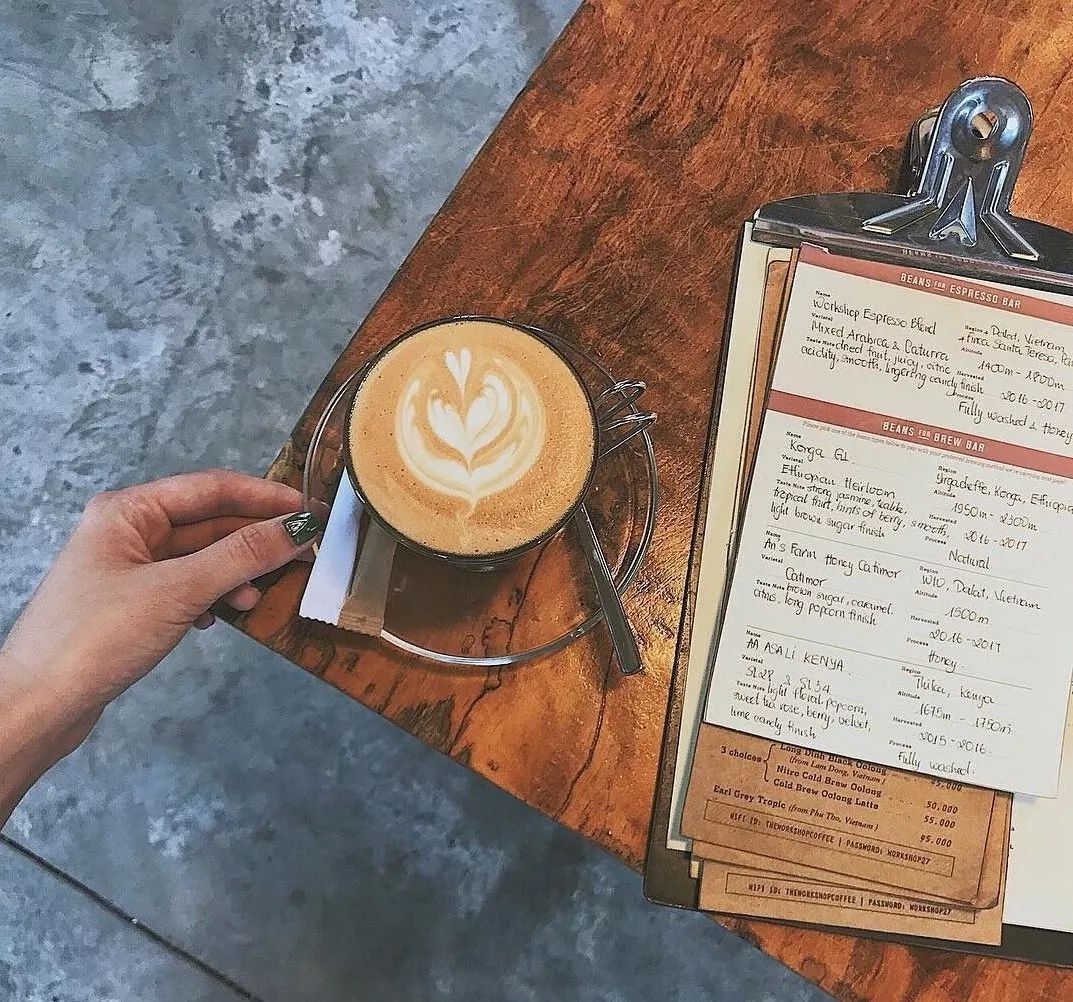 BEANS FOR ESPRESSO BAR
Name
Workshop Espresso Blend
Region
Dalat, Vietnam
+ Finca Santa Teresa,
Varietal
Mixed Arabica & Caturra
Altitude
1400m - 1800m
Taste Note dried fruit, juicy, citric
acidity, smooth, lingering candy finish
Harvested
2016-2017
Process
Fully washed & Honey
BEANS FOR BREW BAR
Please pick one of the beans types below to pair with your preferred brewing method
Name
Konga G1
Region
Yirgacheffe, Konga, Ethiopia
Varietal
Ethiopian Heirloom
Altitude
1950m - 2300m
Taste Note strong, jasmine, tealike,
tropical fruit, hints of berry, smooth,
light brown sugar finish
Harvested
2016-2017
Process
Natural
Name
An's Farm Honey Catimor
Region
Dalat, Vietnam
Varietal
Catimor
Altitude
1500m
Taste Note brown sugar, caramel
citrus, long popcorn finish
Harvested
2016-2017
Process
Honey.
Name
AA ASALI KENYA
Region
Thika, Kenya
Varietal
SL28 & SL34
Altitude
1675m - 1750m
Taste Note light floral, popcorn,
sweet tea rose, berry, velvet,
lime candy finish
Harvested
2015-2016.
Process
Fully washed.
3 choices
Long Dinh Black Oolong
(from Lam Dong, Vietnam)
Nitro Cold Brew Oolong 50.000
Cold Brew Oolong Latte 55.000
Earl Grey Tropic (from Phu Tho, Vietnam) 95.000
WIFI ID: THEWORKSHOPCOFFEE | PASSWORD: WORKSHOP27
WIFI ID: THEWORKSHOPCOFFEE | PASSWORD: WORKSHOP27